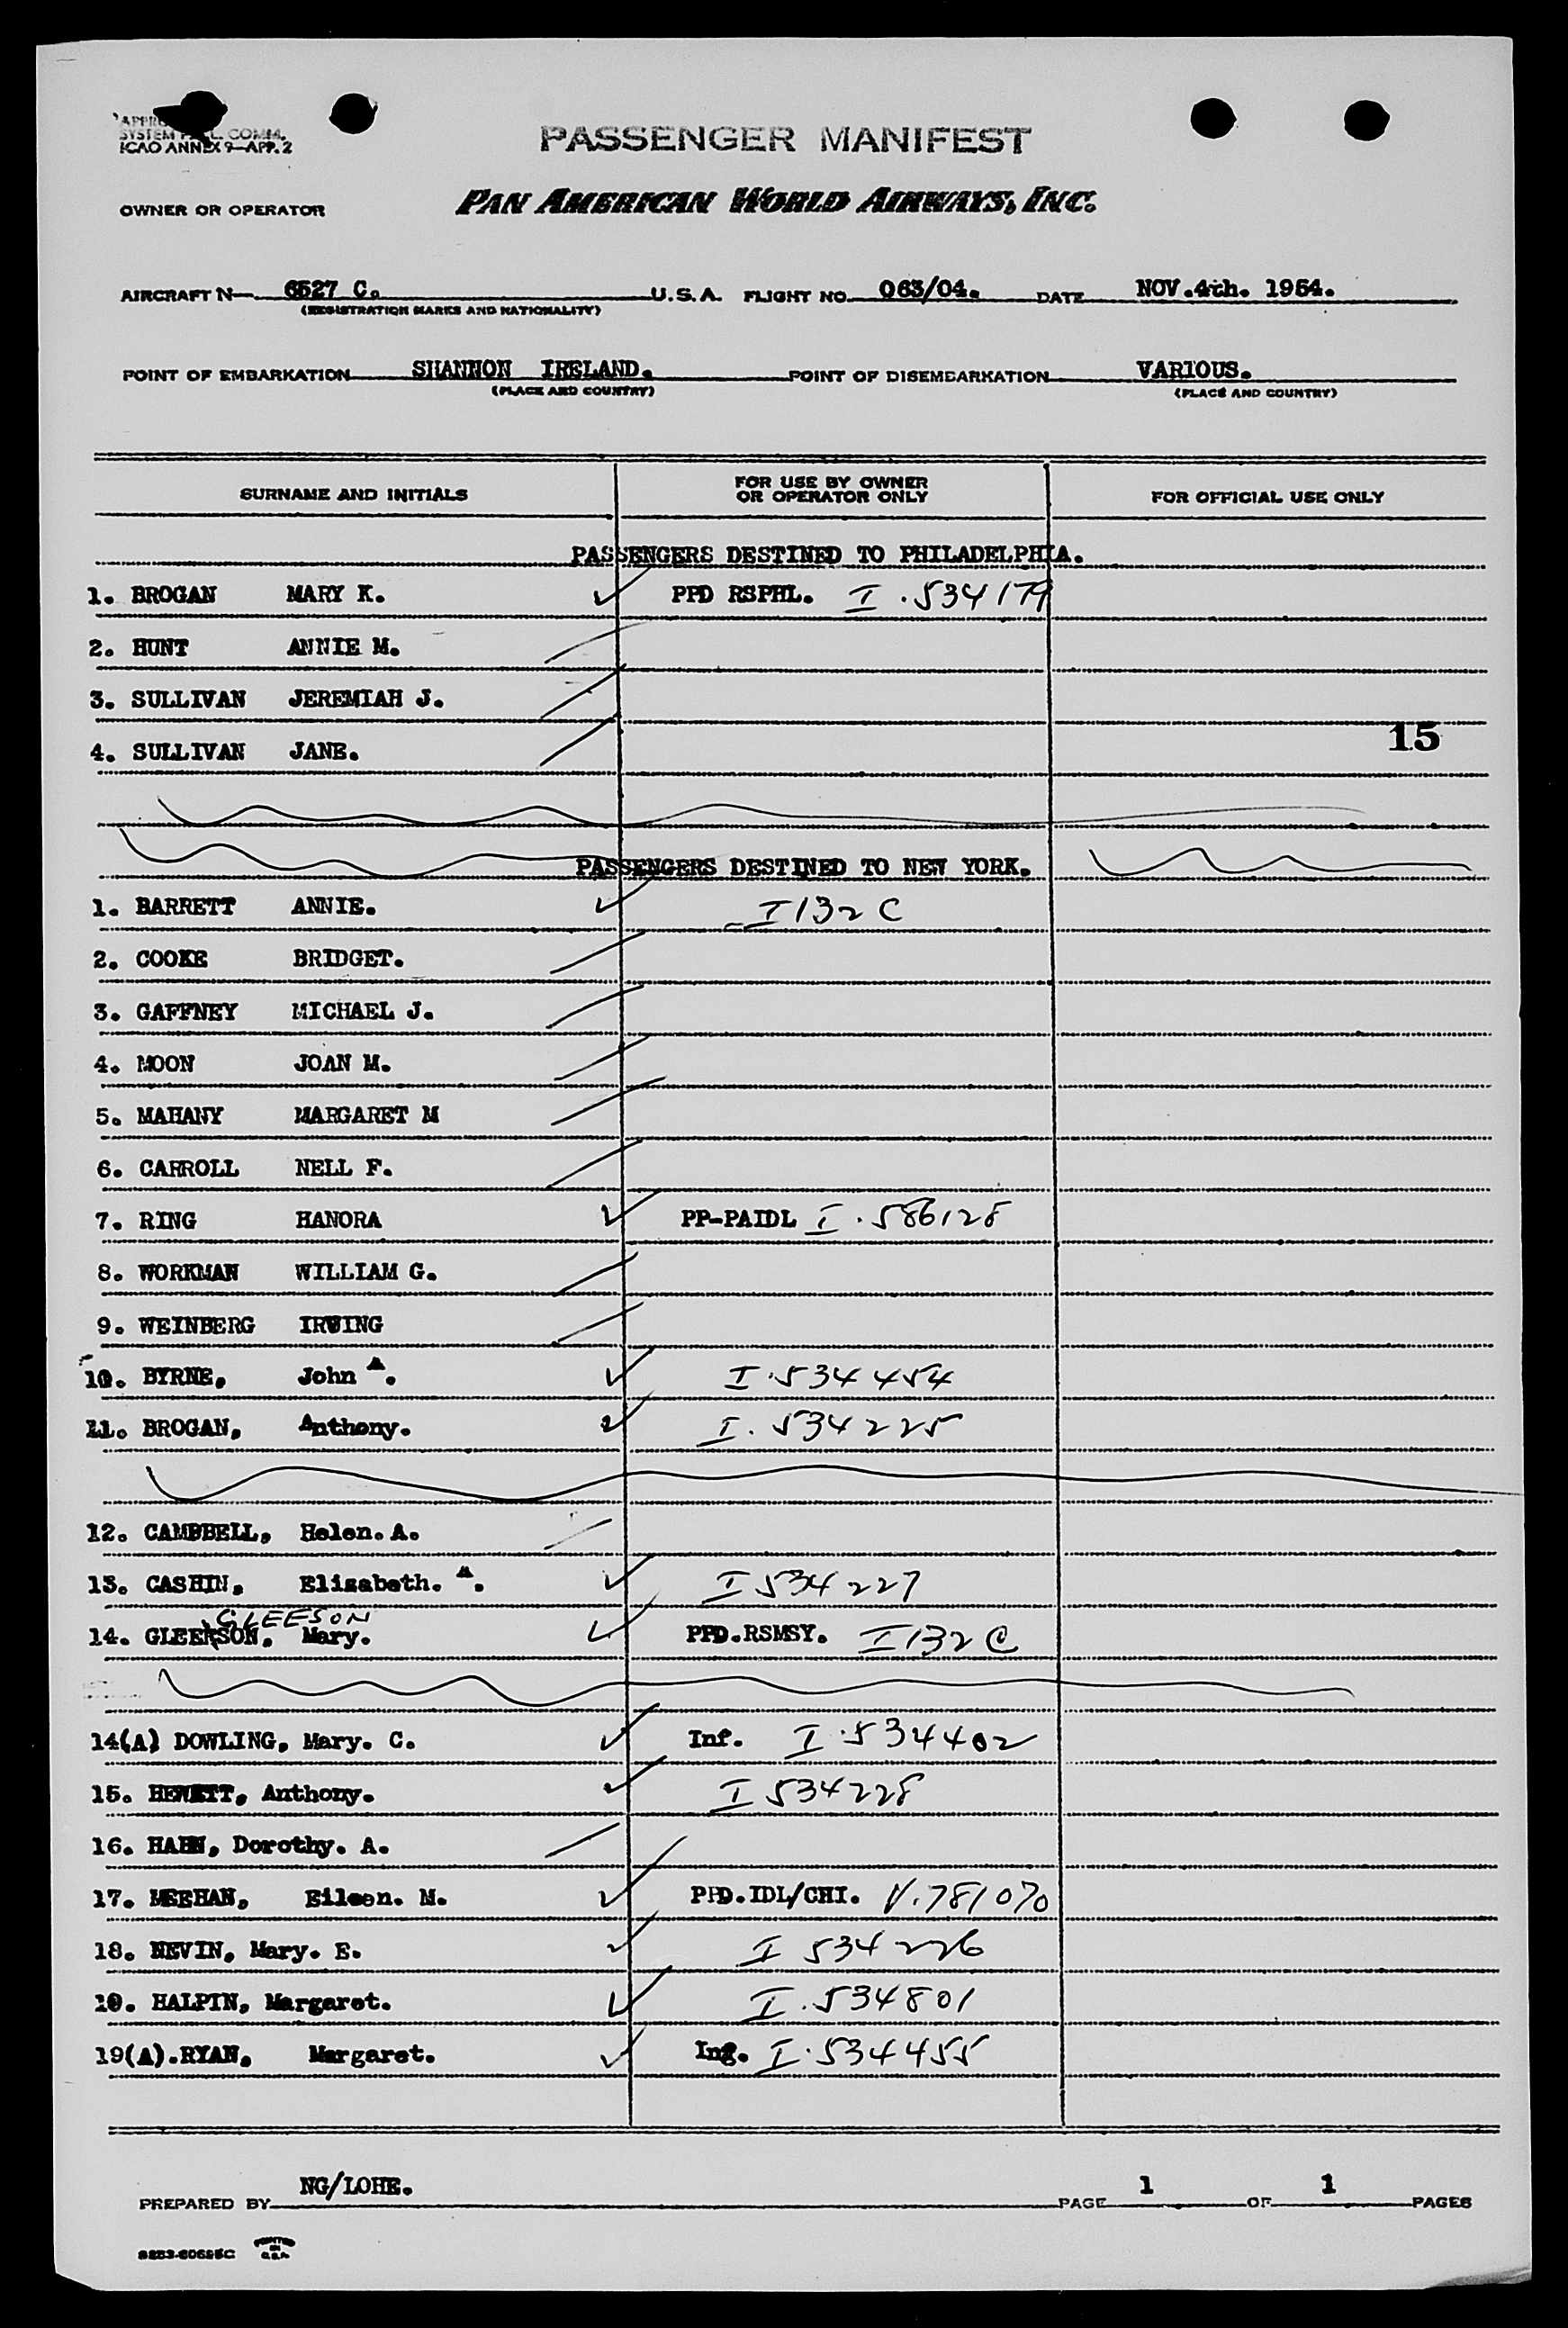 SYSTEM COMM.
ICAO ANNEX 9—APP. 2
PASSENGER MANIFEST
OWNER OR OPERATOR PAN AMERICAN WORLD AIRWAYS, INC.
AIRCRAFT N 6527 C. U.S.A. FLIGHT NO. 063/04. DATE NOV.4th. 1954.
(REGISTRATION MARKS AND NATIONALITY)
POINT OF EMBARKATION SHANNON IRELAND. POINT OF DISEMBARKATION VARIOUS.
(PLACE AND COUNTRY) (PLACE AND COUNTRY)
SURNAME AND INITIALS FOR USE BY OWNER OR OPERATOR ONLY FOR OFFICIAL USE ONLY
PASSENGERS DESTINED TO PHILADELPHIA.
1. BROGAN MARY K. PPD RSPHL. I .534179
2. HUNT ANNIE M.
3. SULLIVAN JEREMIAH J.
4. SULLIVAN JANE.
15
PASSENGERS DESTINED TO NEW YORK.
1. BARRETT ANNIE. I132 C
2. COOKE BRIDGET.
3. GAFFNEY MICHAEL J.
4. MOON JOAN M.
5. MAHANY MARGARET M
6. CARROLL NELL F.
7. RING HANORA PP-PAIDL I . 586128
8. WORKMAN WILLIAM G.
9. WEINBERG IRVING
10. BYRNE, John A. I.534454
11. BROGAN, Anthony. I. 534225
12. CAMPBELL, Helen. A.
13. CASHIN, Elizabeth. A. I 534227
GLEESON
14. Mary. PPD.RSMSY. I132 C
14(A) DOWLING, Mary. C. Inf. I.534402
15. HEWETT, Anthony. I 534228
16. HAHN, Dorothy. A.
17. MEEHAN, Eileen. M. PPD.IDL/CHI. V.781070
18. NEVIN, Mary. E. I 534226
19. HALPIN, Margaret. I.534801
19(A).RYAN, Margaret. Inf. I.534455
PREPARED BY NG/LOHE. PAGE 1 OF 1 PAGES
PRINTED IN U.S.A.